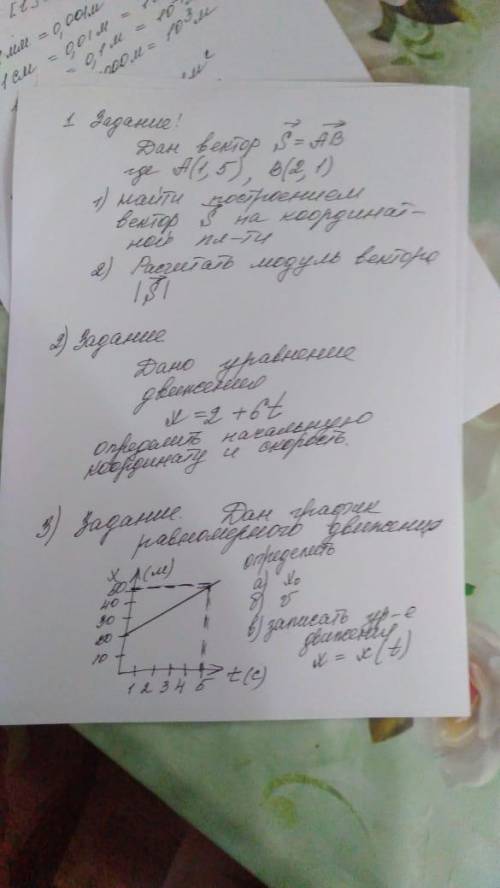 мм = 0,001м
1см = 0,01м = 
= 0,1м = 10
000м = 10³м
1 Задание!
Дан вектор S⃗ = AB⃗
где A(1,5), B(2,1)
1) Найти построением
вектор S⃗ на координат-
ной пл-ти
2) Расчитать модуль вектора
|S⃗|
2) Задание
Дано уравнение
движения
x = 2 + 6t
определить начальную
координату и скорость.
3) Задание. Дан график
равномерного движения
определить
а) x₀
б) v
в) записать ур-е
движения
x = x(t)
x (м)
50
40
30
20
10
1 2 3 4 5 t(c)